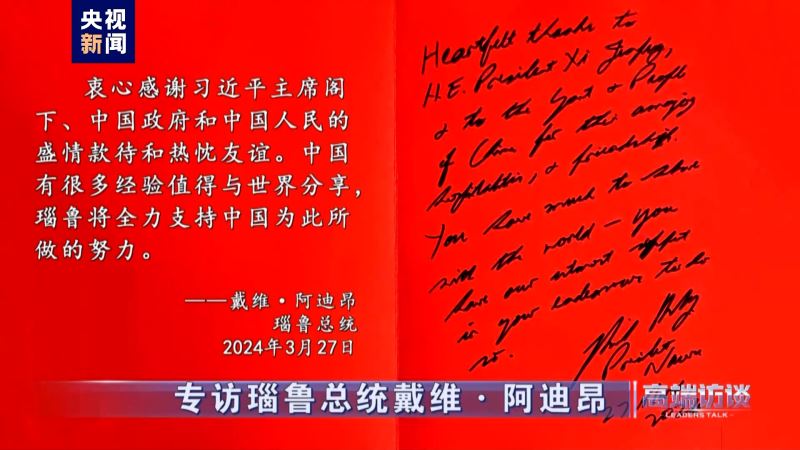 央视
新闻
衷心感谢习近平主席阁
下、中国政府和中国人民的
盛情款待和热忱友谊。中国
有很多经验值得与世界分享，
瑙鲁将全力支持中国为此所
做的努力。
——戴维·阿迪昂
瑙鲁总统
2024年3月27日
Heartfelt thanks to
H.E. President Xi Jinping,
& to the Govt & People
of China for the amazing
hospitalities, & friendship.
You have much to share
with the world — you
have our utmost support
in your endeavours to do
so.
President
Nauru
27
专访瑙鲁总统戴维·阿迪昂
高端访谈
LEADERS TALK